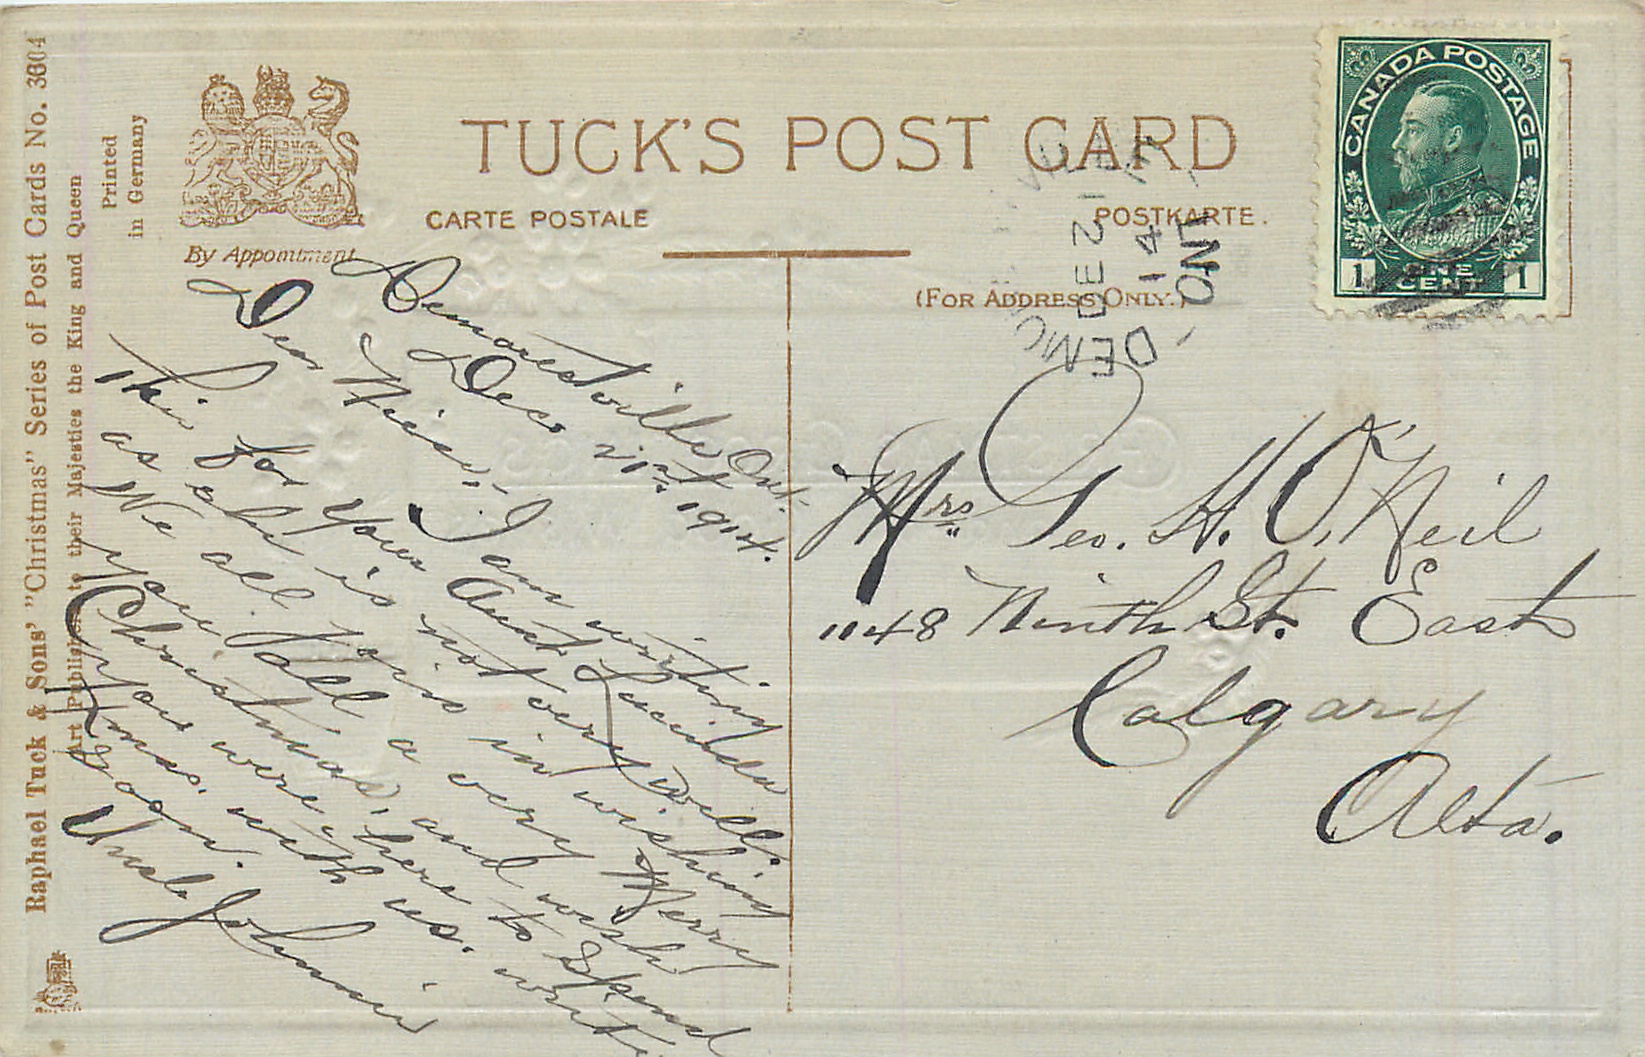 Raphael Tuck & Sons' "Christmas" Series of Post Cards No. 3604
Art Publishers to their Majesties the King and Queen
Printed
in Germany
By Appointment
TUCK'S POST CARD
CARTE POSTALE
POSTKARTE.
(FOR ADDRESS ONLY.)
CANADA POSTAGE
1 ONE CENT 1
DEMORESTVILLE
DE 21
14
ONT
Demorestville Ont.
Dec. 21st 1914.
Dear Niece:- I am writing
this for your Aunt Lucinda
as she is not very well.
We all join in wishing
you all a very Merry
Christmas, and wish
you were here to spend
Xmas. with us. write
soon.
Uncle Johnnie
Mrs. Geo. H. O'Neil
1148 Ninth St. East
Calgary
Alta.